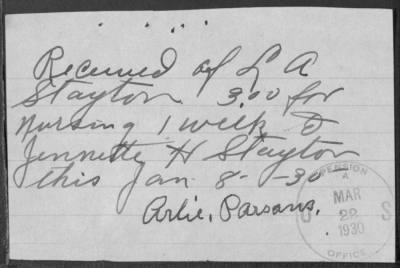 Received of L A
Stayton 3.00 for
nursing 1 week to
Jennette H Stayton
this Jan 8- -30
Arlie. Parsons.
PENSION
A
MAR
22
1930
U S
OFFICE